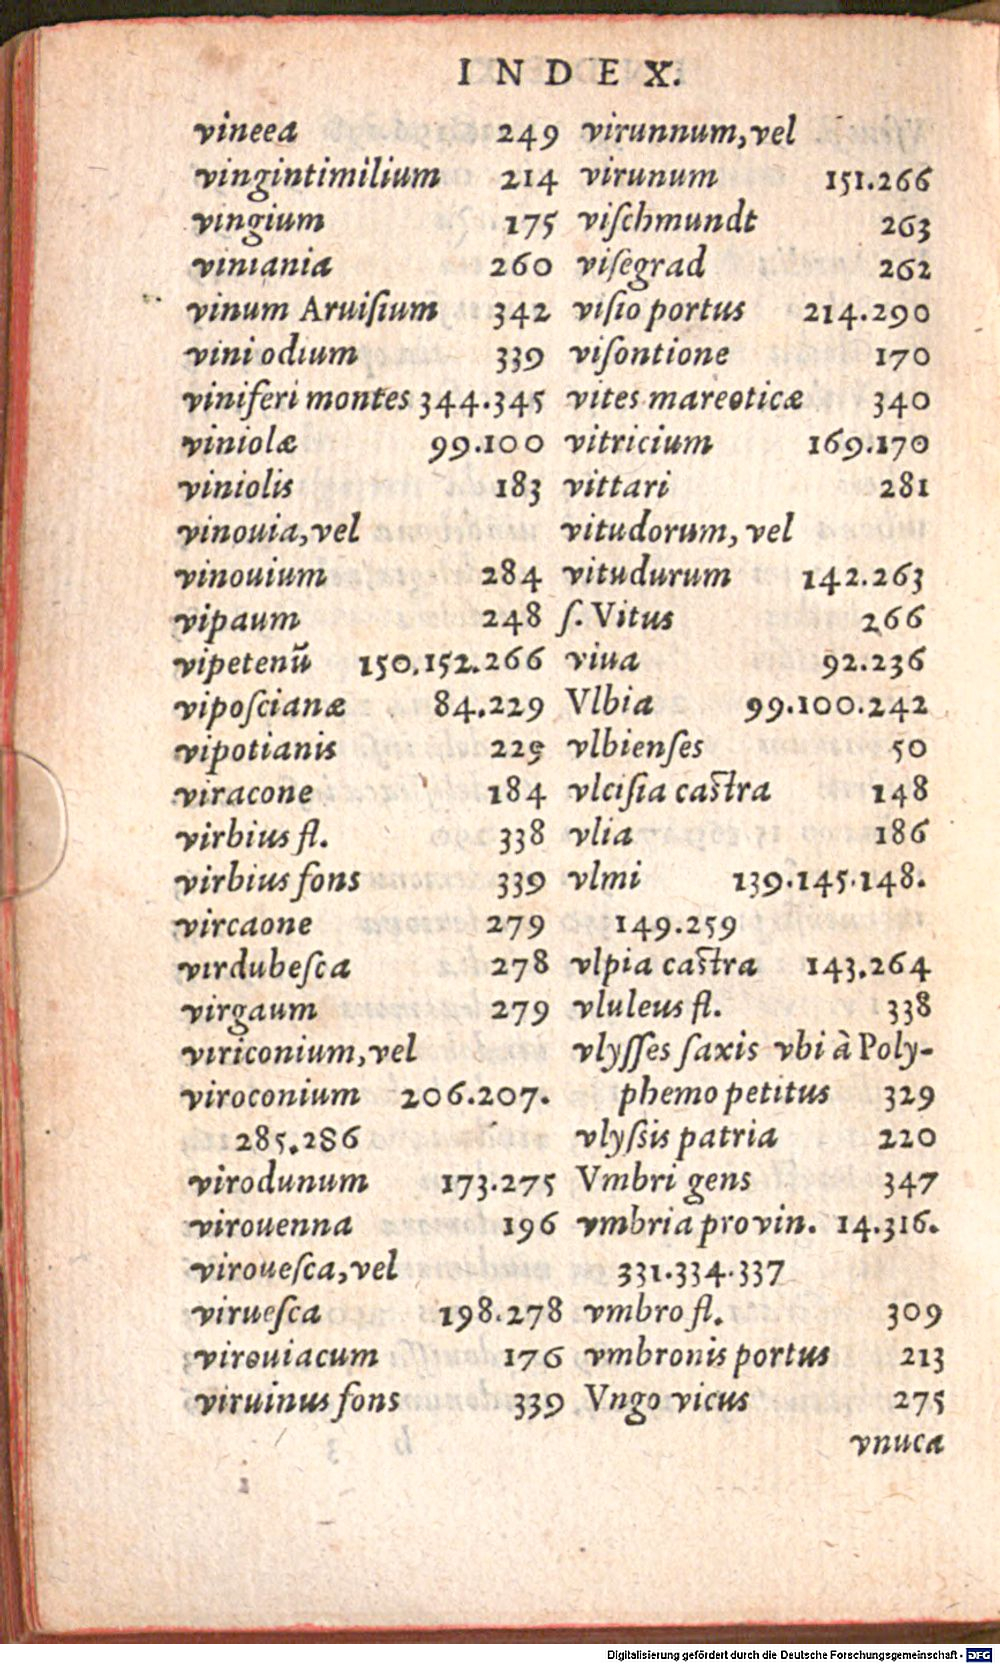 INDEX.
vineea 249
vingintimilium 214
vingium 175
viniania 260
vinum Aruiſium 342
viniodium 339
viniferi montes 344.345
viniolæ 99.100
viniolis 183
vinouia, vel
vinouium 284
vipaum 248
vipetenū 150.152.266
vipoſcianæ 84.229
vipotianis 229
viracone 184
virbius fl. 338
virbius fons 339
vircaone 279
virdubeſca 278
virgaum 279
viriconium, vel
viroconium 206.207.
285.286
virodunum 173.275
virouenna 196
viroueſca, vel
virueſca 198.278
virouiacum 176
viruinus fons 339
virunnum, vel
virunum 151.266
viſchmundt 263
viſegrad 262
viſio portus 214.290
viſontione 170
vites mareoticæ 340
vitricium 169.170
vittari 281
vitudorum, vel
vitudurum 142.263
ſ. Vitus 266
viua 92.236
Vlbia 99.100.242
vlbienſes 50
vlciſia caſtra 148
vlia 186
vlmi 139.145.148.
149.259
vlpia caſtra 143.264
vluleus fl. 338
vlyſſes ſaxis vbi à Poly-
phemo petitus 329
vlyſsis patria 220
Vmbri gens 347
vmbria provin. 14.316.
331.334.337
vmbro fl. 309
vmbronis portus 213
Vngo vicus 275
vnuca
Digitalisierung gefördert durch die Deutsche Forschungsgemeinschaft - DFG